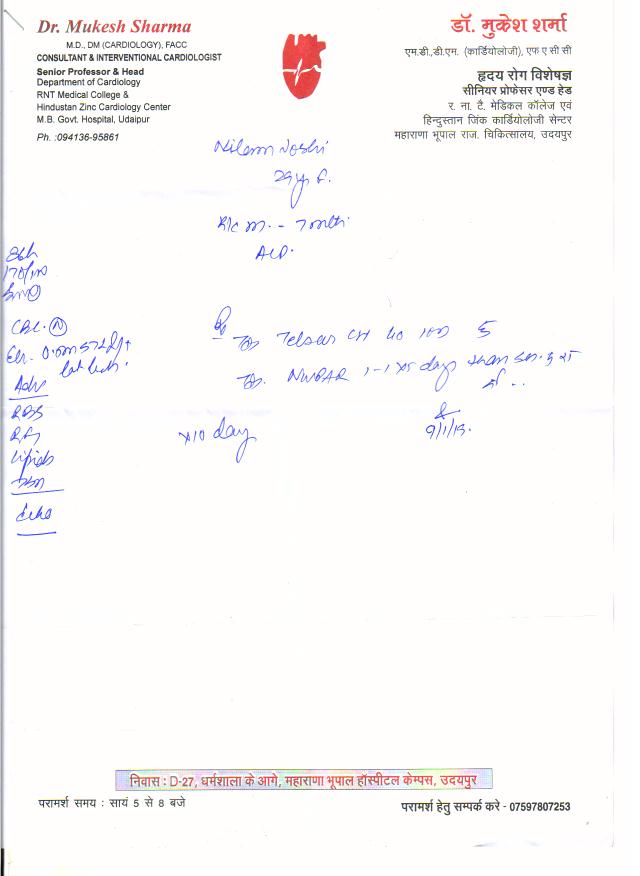 Dr. Mukesh Sharma
M.D., DM (CARDIOLOGY), FACC
CONSULTANT & INTERVENTIONAL CARDIOLOGIST
Senior Professor & Head
Department of Cardiology
RNT Medical College &
Hindustan Zinc Cardiology Center
M.B. Govt. Hospital, Udaipur
Ph. :094136-95861
डॉ. मुकेश शर्मा
एम.डी.,डी.एम. (कार्डियोलोजी), एफ ए सी सी
हृदय रोग विशेषज्ञ
सीनियर प्रोफेसर एण्ड हेड
र. ना. टै. मेडिकल कॉलेज एवं
हिन्दुस्तान जिंक कार्डियोलोजी सेन्टर
महाराणा भूपाल राज. चिकित्सालय, उदयपुर
29y F.
7 mth
170/110
CBC. N
Adv
RBS
Lipids
Echo
Tab Telsar CH 40 1on
Tab. 1-1 x5 days than
x10 day
9/1/15.
निवास : D-27, धर्मशाला के आगे, महाराणा भूपाल हॉस्पीटल केम्पस, उदयपुर
परामर्श समय : सायं 5 से 8 बजे
परामर्श हेतु सम्पर्क करे - 07597807253